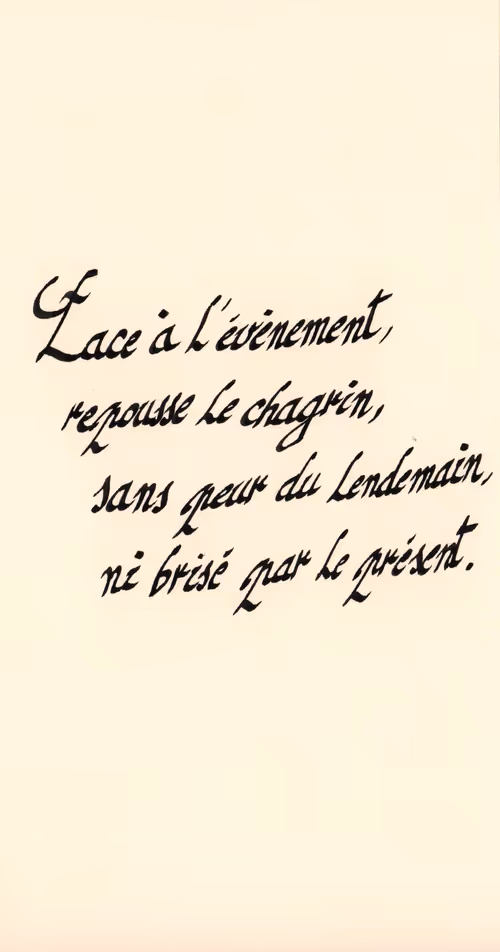 Face à l'événement,
repousse le chagrin,
sans peur du lendemain,
ni brisé par le présent.